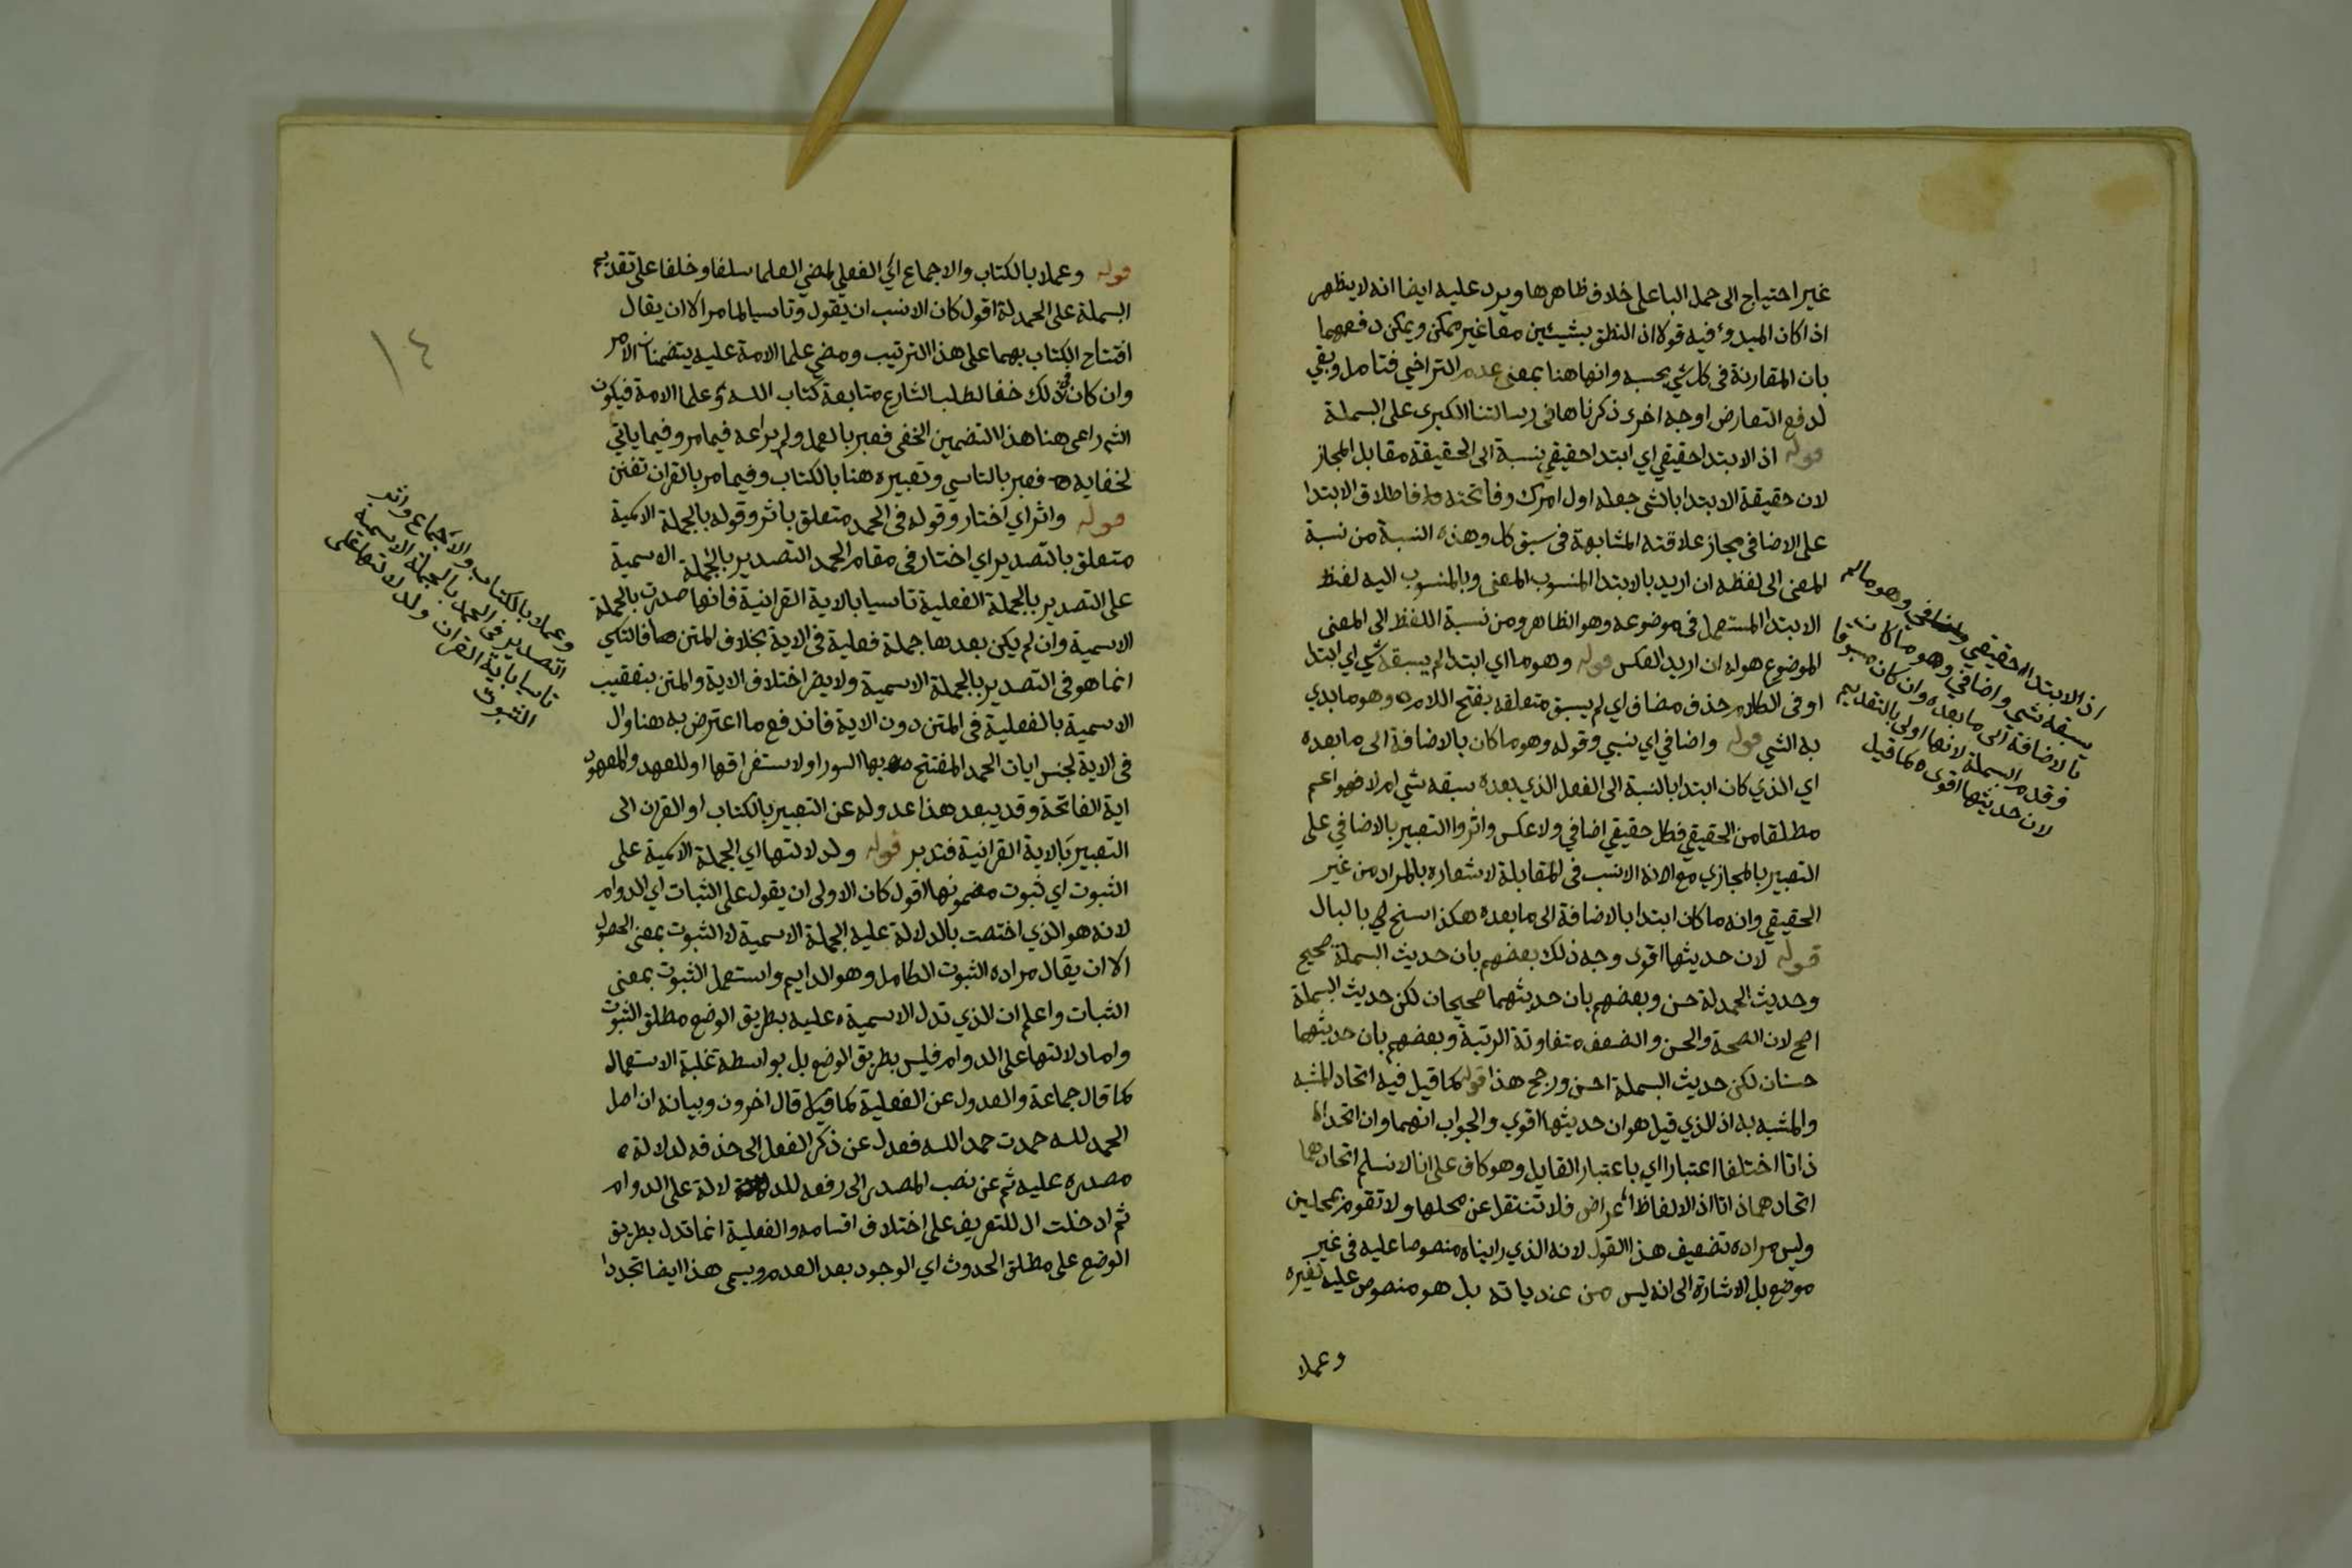 غير احتياج الى حمل الباعلى خلاف ظاهرها ويرد عليه ايضا انه لا يظهر
اذا كان المبدوء فيه قولا اذ النطق بشيئين معا غير ممكن ويمكن دفعهما
بان المقارنة فى كل شي بحسبه وانها هنا بمعنى عدم التراخي فتامل وبقي
لدفع التعارض اوجه اخرى ذكرناها فى رسالتنا الكبرى على البسملة
قوله اذ الابتدا حقيقي اي ابتدا حقيقي نسبة الى الحقيقة مقابل المجاز
لان حقيقة الابتدا بالشى جعله اول امرك وفاتحته فاطلاق الابتدا
على الاضافى مجاز علاقته المشابهة فى سبق كل وهذه النسبة من نسبة
المعنى الى لفظه ان اريد بالابتدا المنسوب المعنى وبالمنسوب اليه لفظ
الابتدا المستعمل فى موضوعه وهو الظاهر ومن نسبة اللفظ الى المعنى
الموضوع هو له ان اريد العكس قوله وهو ما اي ابتدا لم يسبقه شي اي ابتدا
او فى الكلام حذف مضاف اي لم يسبق متعلقه بفتح اللام وهو ما بدي
به الشي قوله واضافي اي نسبي وقوله وهو ما كان بالاضافة الى ما بعده
اي الذي كان ابتدا بالنسبة الى الفعل الذي بعده سبقه شي ام لا فهو اعم
مطلقا من الحقيقي فكل حقيقي اضافي ولا عكس واثروا التعبير بالاضافي على
التعبير بالمجازي مع انه الانسب فى المقابلة لاشعاره بالمراد من غير
الحقيقي وانه ما كان ابتدا بالاضافة الى ما بعده هكذا سنح لي بالبال
قوله لان حديثها اقوى وجه ذلك بعضهم بان حديث البسملة صحيح
وحديث الحمدلة حسن وبعضهم بان حديثهما صحيحان لكن حديث البسملة
اصح لان الصحة والحسن والضعف متفاوتة الرتبة وبعضهم بان حديثهما
حسنان لكن حديث البسملة احسن ورجح هذا قوله كما قيل فيه اتحاد المشبه
والمشبه به اذ الذي قيل هو ان حديثها اقوي والجواب انهما وان اتحدا
ذاتا اختلفا اعتبارا اي باعتبار القايل وهو كاف على انا لا نسلم اتحادهما
اتحادهما ذاتا اذ الالفاظ اعراض فلا تنتقل عن محلها ولا تقوم بمحلين
وليس مراده تضعيف هذا القول لانه الذي رايناه منصوصا عليه فى غير
موضع بل الاشارة الى انه ليس من عندياته بل هو منصوص عليه لغيره
وعملا
اذ الابتدا حقيقي وهو مالم
يسبقه شي واضافي وهو ما كان
بالاضافة الى ما بعده وان كان مسبوقا
وقدم البسملة لانها اولى بالتقديم
لان حديثها اقوى كما قيل
قوله وعملا بالكتاب والاجماع اي الفعلي لمضي العلما سلفا وخلفا على تقديم
البسملة على الحمدلة اقول كان الانسب ان يقول وتاسيا لما مر الا ان يقال
افتتاح الكتاب بهما على هذا الترتيب ومضي علما الامة عليه يتضمنان الامر
وان كان فى ذلك خفا لطلب الشارع متابعة كتاب الله وعلما الامة فيكون
الشم راعى هنا هذا التضمين الخفى فعبر بالعمل ولم يراعه فيما مر وفيما ياتي
لخفايه فعبر بالتاسي وتعبيره هنا بالكتاب وفيما مر بالقران تفنن
قوله واثر اي اختار وقوله فى الحمد متعلق باثر وقوله بالجملة الاسمية
متعلق بالتصدير اي اختار فى مقام الحمد التصدير بالجملة الاسمية
على التصدير بالجملة الفعلية تاسيا بالاية القرانية فانها صدرت بالجملة
الاسمية وان لم يكن بعدها جملة فعلية فى الاية بخلاف المتن فالتاسي
انما هو فى التصدير بالجملة الاسمية ولا يضر اختلاف الاية والمتن بتعقيب
الاسمية بالفعلية فى المتن دون الاية فاندفع ما اعترض به هنا وال
فى الاية لجنس ايات الحمد المفتتح بها السور او لاستغراقها او للعهد والمعهود
اية الفاتحة وقد يبعد هذا عدوله عن التعبير بالكتاب او القران الى
التعبير بالاية القرانية فتدبر قوله ولدلالتها اي الجملة الاسمية على
الثبوت اي ثبوت مضمونها اقول كان الاولى ان يقول على الثبات اي الدوام
لانه هو الذي اختصت بالدلالة عليه الجملة الاسمية لا الثبوت بمعنى الحصول
الا ان يقال مراده الثبوت الكامل وهو الدايم واستعمل الثبوت بمعنى
الثبات واعلم ان الذي تدل الاسمية عليه بطريق الوضع مطلق الثبوت
واما دلالتها على الدوام فليس بطريق الوضع بل بواسطة غلبة الاستعمال
كما قال جماعة والعدول عن الفعلية كما قال اخرون وبيانه ان اصل
الحمد لله حمدت حمد الله فعدل عن ذكر الفعل الى حذفه لدلالة
مصدره عليه ثم عن نصب المصدر الى رفعه للدلالة على الدوام
ثم ادخلت ال للتعريف على اختلاف اقسامه والفعلية انما تدل بطريق
الوضع على مطلق الحدوث اي الوجود بعد العدم ويسمى هذا ايضا تجددا
١٤
وعملا بالكتاب والاجماع واثر
التصدير فى الحمد بالجملة الاسمية
تاسيا باية القران ولدلالتها على
الثبوت